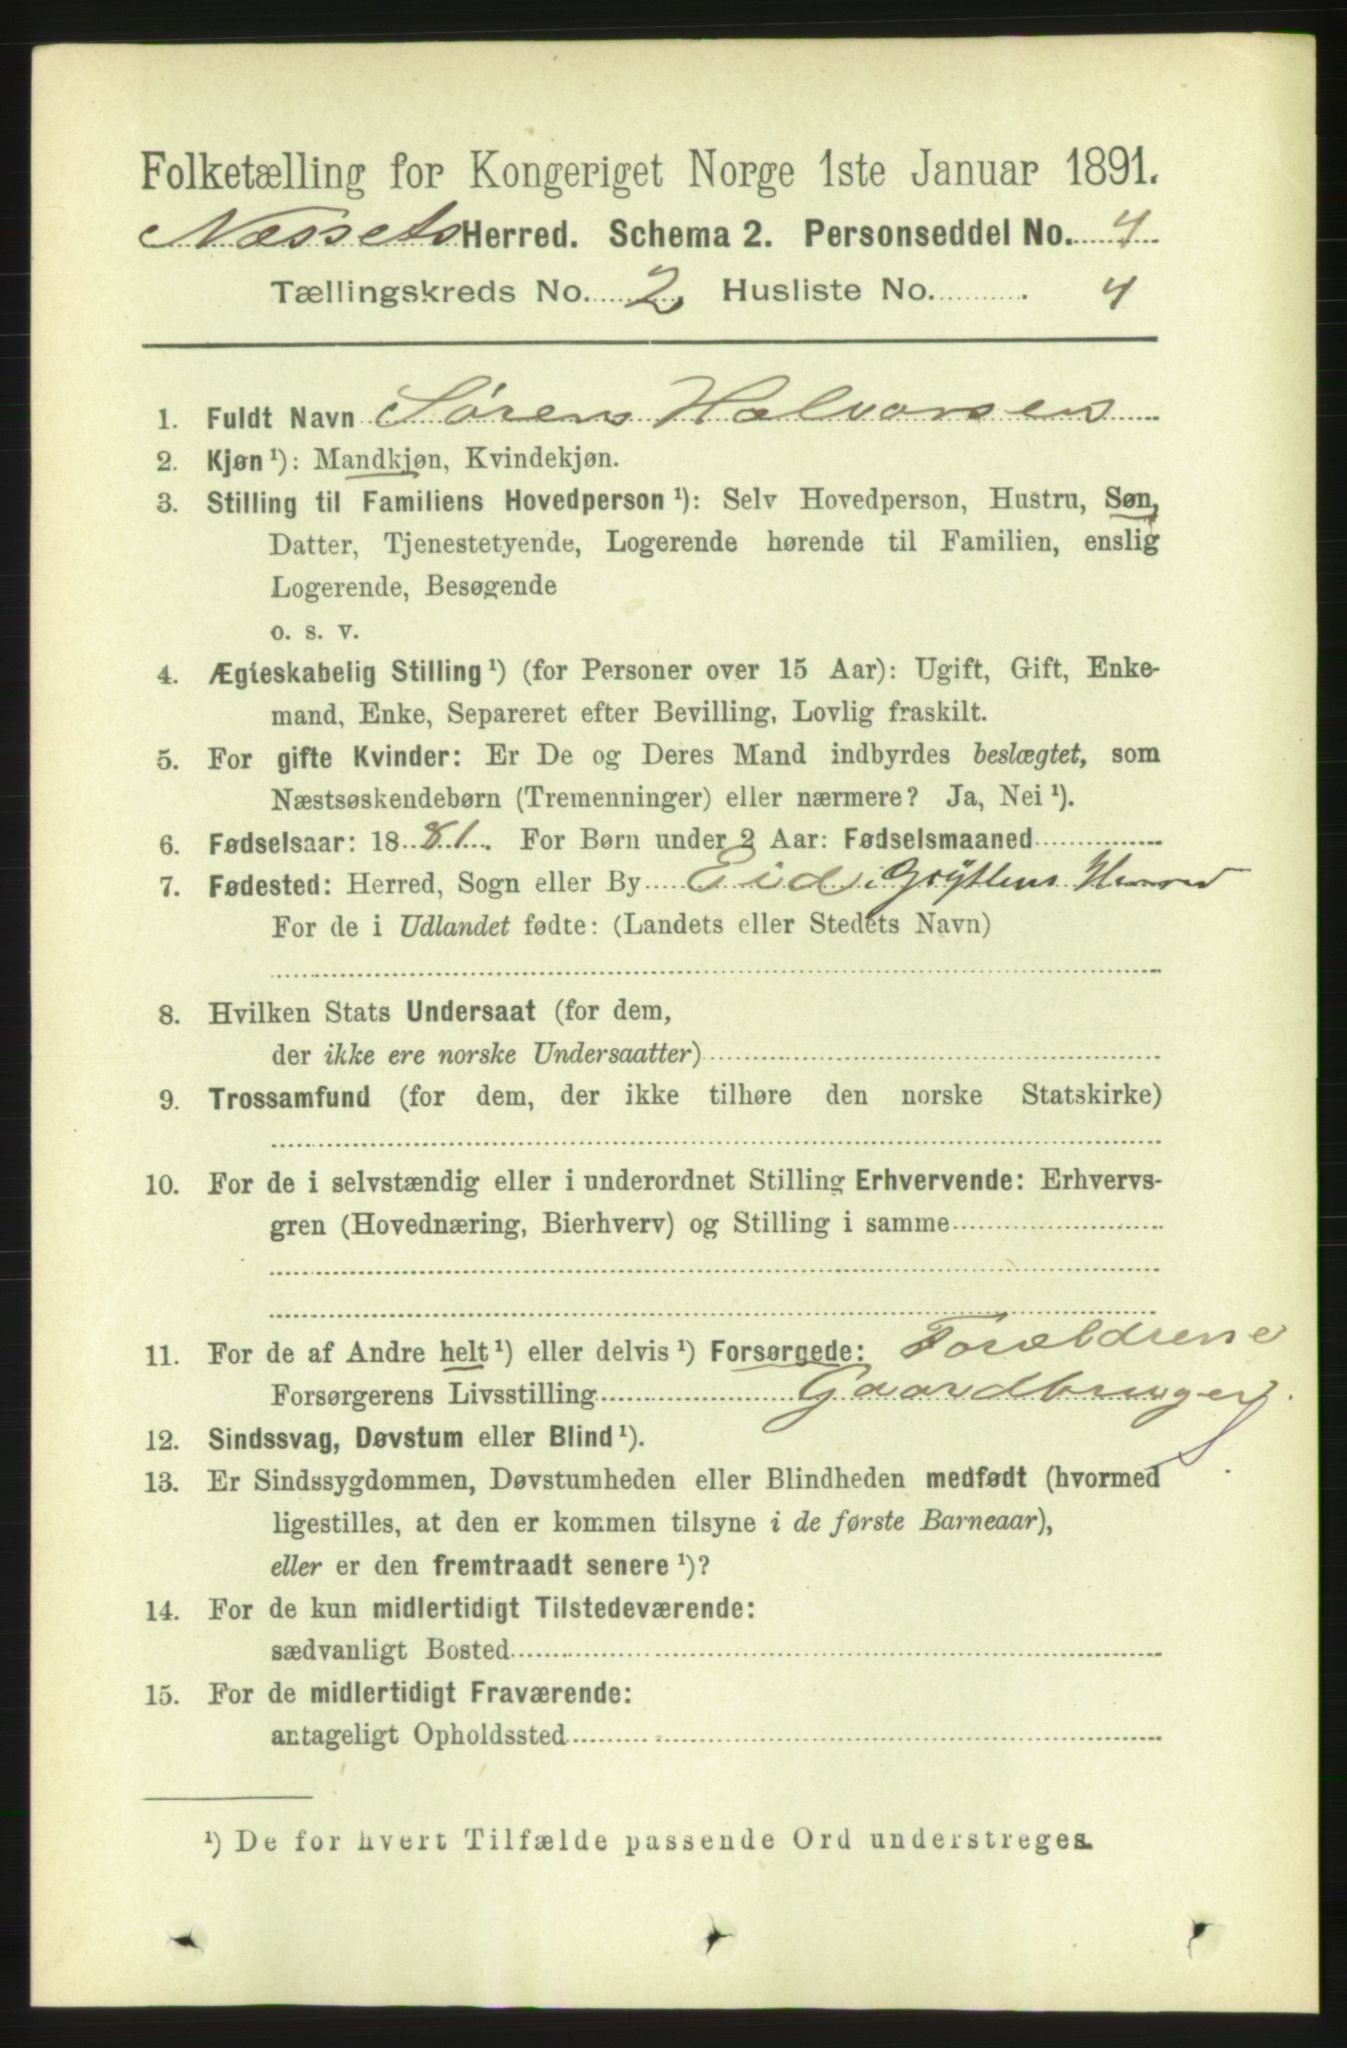 Folketælling for Kongeriget Norge 1ste Januar 1891.
Næssets Herred. Schema 2. Personseddel No. 4
Tællingskreds No. 2. Husliste No. 4
1. Fuldt Navn Søren Halvorsen
2. Kjøn ¹): Mandkjøn, Kvindekjøn.
3. Stilling til Familiens Hovedperson ¹): Selv Hovedperson, Hustru, Søn,
Datter, Tjenestetyende, Logerende hørende til Familien, enslig
Logerende, Besøgende
o. s. v.
4. Ægteskabelig Stilling ¹) (for Personer over 15 Aar): Ugift, Gift, Enke-
mand, Enke, Separeret efter Bevilling, Lovlig fraskilt.
5. For gifte Kvinder: Er De og Deres Mand indbyrdes beslægtet, som
Næstsøskendebørn (Tremenninger) eller nærmere? Ja, Nei ¹).
6. Fødselsaar: 1881. For Børn under 2 Aar: Fødselsmaaned
7. Fødested: Herred, Sogn eller By Eid i Gryttens Herred
For de i Udlandet fødte: (Landets eller Stedets Navn)
8. Hvilken Stats Undersaat (for dem,
der ikke ere norske Undersaatter)
9. Trossamfund (for dem, der ikke tilhøre den norske Statskirke)
10. For de i selvstændig eller i underordnet Stilling Erhvervende: Erhvervs-
gren (Hovednæring, Bierhverv) og Stilling i samme
11. For de af Andre helt ¹) eller delvis ¹) Forsørgede: Forældrene
Forsørgerens Livsstilling Gaardbruger.
12. Sindssvag, Døvstum eller Blind ¹).
13. Er Sindssygdommen, Døvstumheden eller Blindheden medfødt (hvormed
ligestilles, at den er kommen tilsyne i de første Barneaar),
eller er den fremtraadt senere ¹)?
14. For de kun midlertidigt Tilstedeværende:
sædvanligt Bosted
15. For de midlertidigt Fraværende:
antageligt Opholdssted
¹) De for hvert Tilfælde passende Ord understreges.